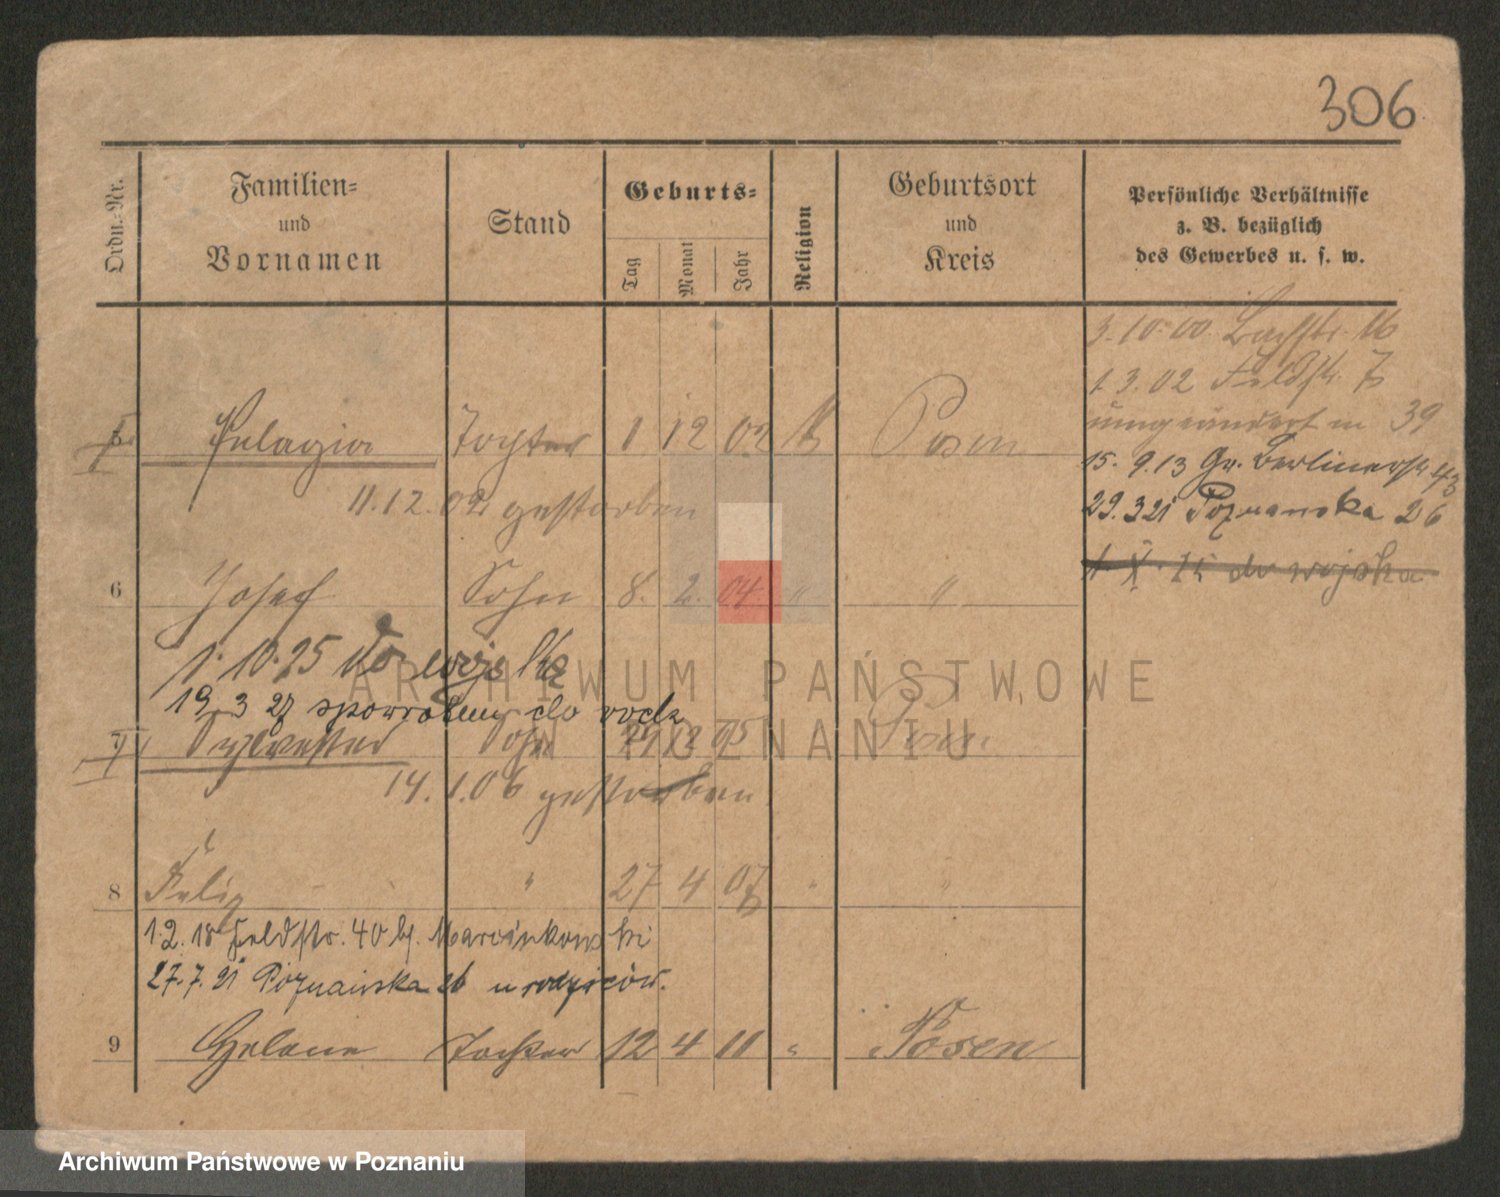 306
Ordn.-Nr.
Familien-
und
Vornamen
Stand
Geburts-
Tag
Monat
Jahr
Religion
Geburtsort
und
Kreis
Persönliche Verhältnisse
z. B. bezüglich
des Gewerbes u. s. w.
3.10.00 Bachstr. 16
1.3.02 Feldstr. 7
umgeändert in 39
15. 9.13 Gr. Berlinerstr. 43
29.3 21 Poznanska 26
1. X. 25 do wojska
Pelagia Tochter 1 12 02 k Posen
11.12.02 gestorben
6 Josef Sohn 8. 2. 04 " "
1.10.25 do wojska
19.3 27 spowrotem do rodz
7 Sylvester Sohn 29 12 05 Posen
14.1.06 gestorben
8 Felix " 27 4 07 " "
1.2.18 Feldstr. 40 bj. Marcinkowski
27.7.21 Poznańska 26 u rodziców.
9 Helene Tochter 12 4 11 " Posen
ARCHIWUM PAŃSTWOWE
W POZNANIU
Archiwum Państwowe w Poznaniu